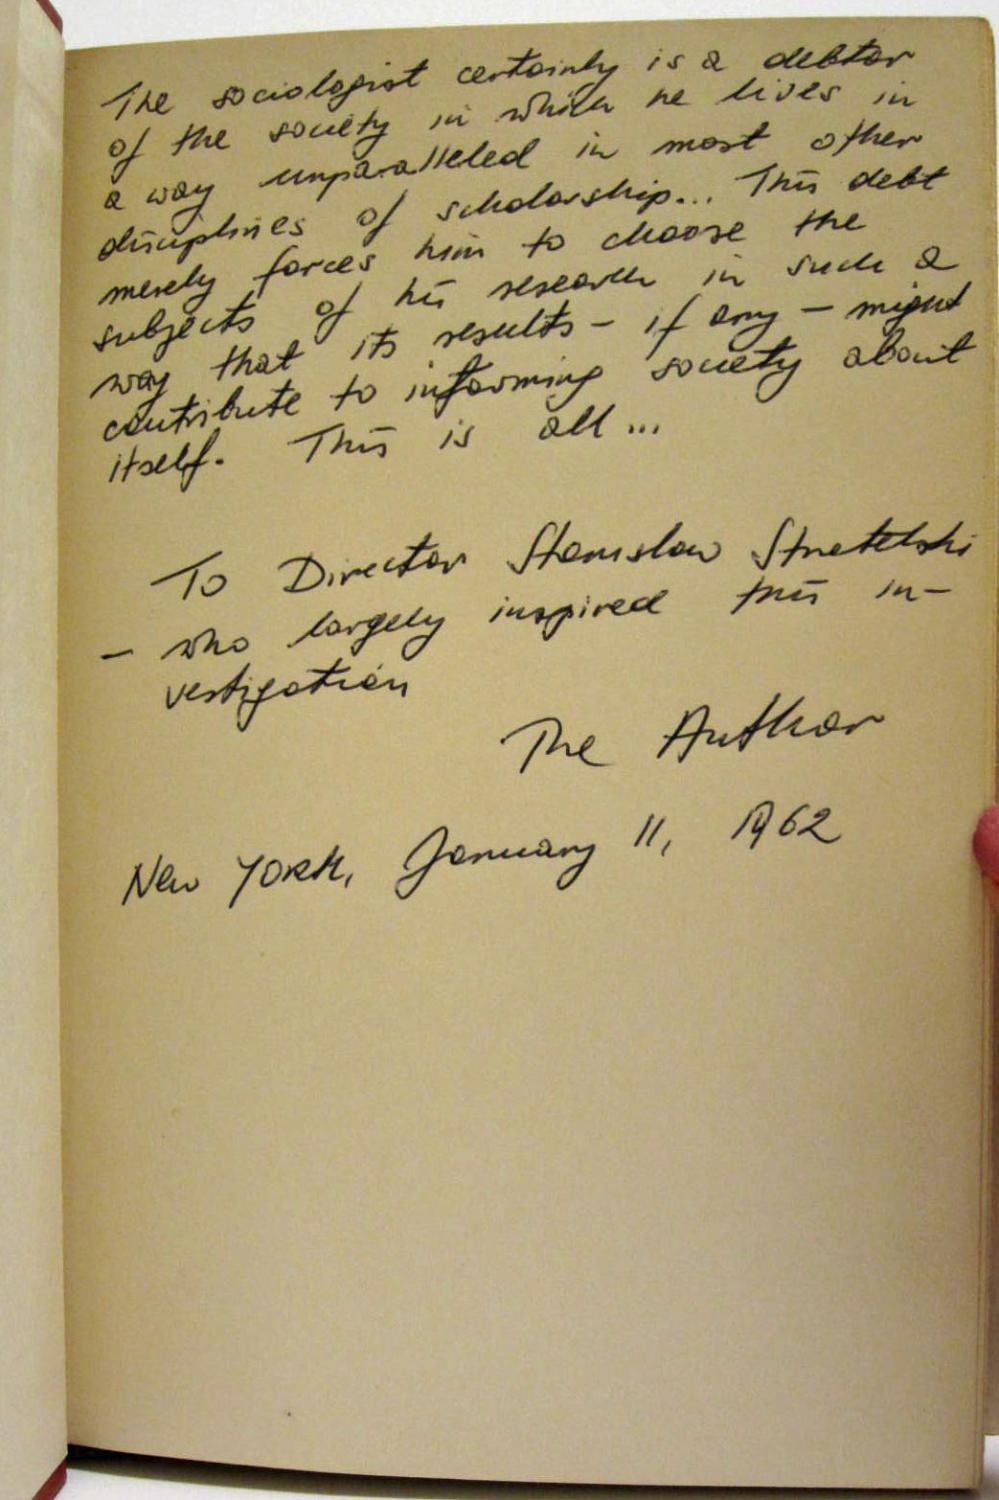 The sociologist certainly is a debtor
of the society in which he lives in
a way unparalleled in most other
disciplines of scholarship... This debt
merely forces him to choose the
subjects of his research in such a
way that its results – if any – might
contribute to informing society about
itself. This is all...
To Director Stanislaw
– who largely inspired this in-
vestigation
The Author
New York, January 11, 1962